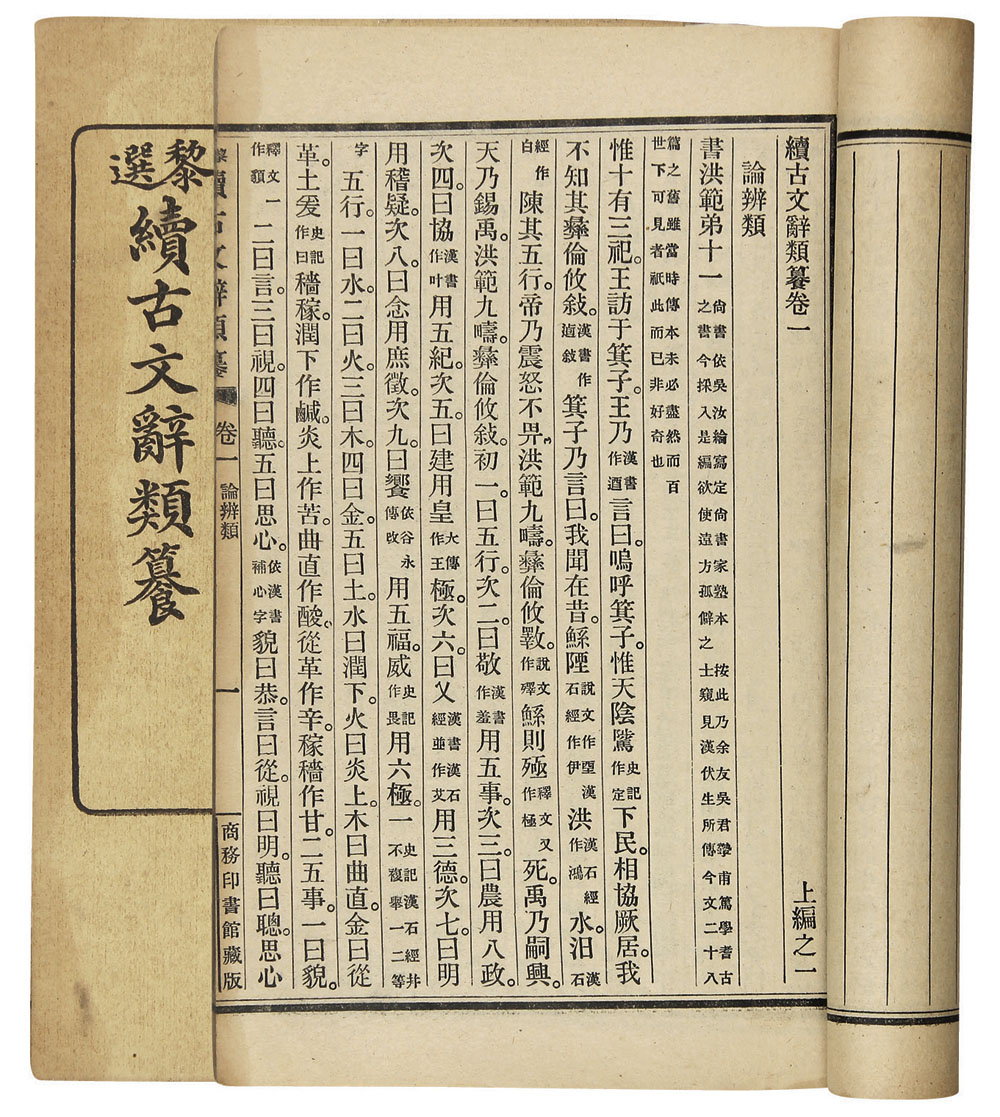 續古文辭類纂卷一　上編之一
論辨類
書洪範弟十一 尙書依吳汝綸寫定尙書家塾本 按此乃余友吳君摯甫篤學耆古之書今採入是編欲使遠方孤僻之士窺見漢伏生所傳今文二十八
篇之舊雖當時傳本未必盡然而百世下可見者祇此而已非好奇也
惟十有三祀。王訪于箕子。王乃漢書作逎言曰。嗚呼箕子。惟天陰騭史記作定下民。相協厥居。我
不知其彝倫攸敍。漢書作逌敍箕子乃言曰。我聞在昔。鯀陻說文作垔漢石經作伊洪漢石經作鴻水。汩漢石
經作曰陳其五行。帝乃震怒不畀洪範九疇。彝倫攸斁。說文作殬鯀則殛釋文又作極死。禹乃嗣興。
天乃錫禹。洪範九疇。彝倫攸敍。初一曰五行。次二曰敬漢書作羞用五事。次三曰農用八政。
次四曰協漢書作叶用五紀。次五曰建用皇大傳作王極。次六曰乂漢書漢石經並作艾用三德。次七曰明
用稽疑。次八曰念用庶徵。次九曰饗依谷永傳改用五福。威史記作畏用六極。一史記漢石經幷不複舉一二等
字五行。一曰水。二曰火。三曰木。四曰金。五曰土。水曰潤下。火曰炎上。木曰曲直。金曰從
革。土爰史記作曰穡稼。潤下作鹹。炎上作苦。曲直作酸。從革作辛。稼穡作甘。二五事。一曰貌。
釋文一作䫉二曰言。三曰視。四曰聽。五曰思心。依漢書補心字貌曰恭。言曰從。視曰明。聽曰聰。思心
卷一 論辨類 一 商務印書館藏版
黎選續古文辭類纂